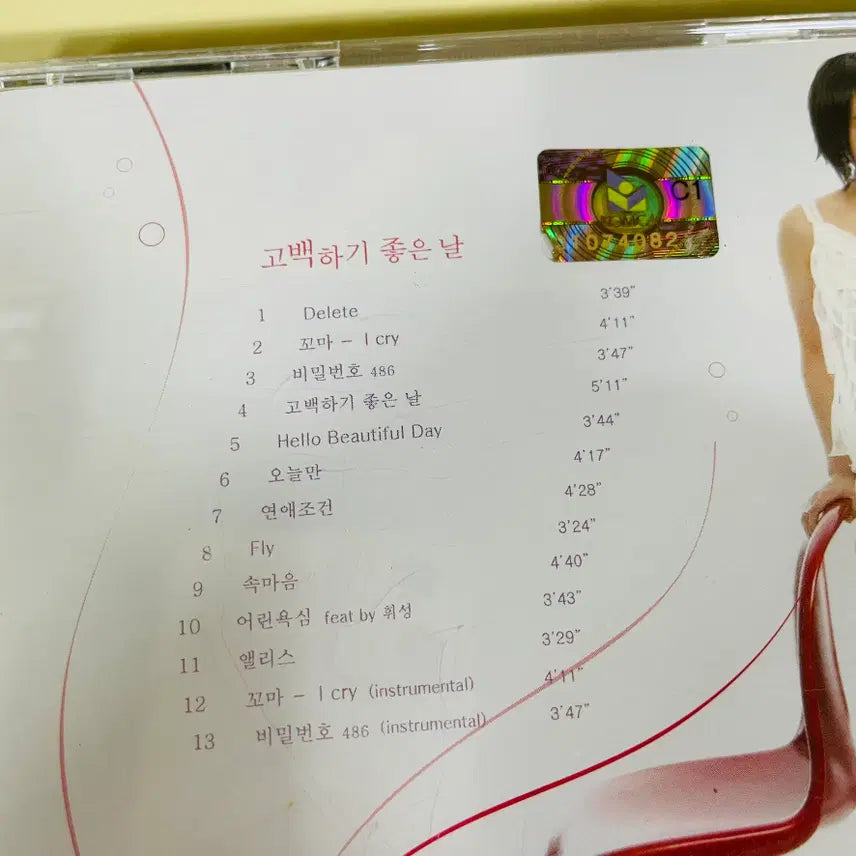 C1
KOMCA
고백하기 좋은 날
1 Delete 3'39"
2 꼬마 - I cry 4'11"
3 비밀번호 486 3'47"
4 고백하기 좋은 날 5'11"
5 Hello Beautiful Day 3'44"
6 오늘만 4'17"
7 연애조건 4'28"
8 Fly 3'24"
9 속마음 4'40"
10 어린욕심 feat by 휘성 3'43"
11 앨리스 3'29"
12 꼬마 - I cry (instrumental) 4'11"
13 비밀번호 486 (instrumental) 3'47"